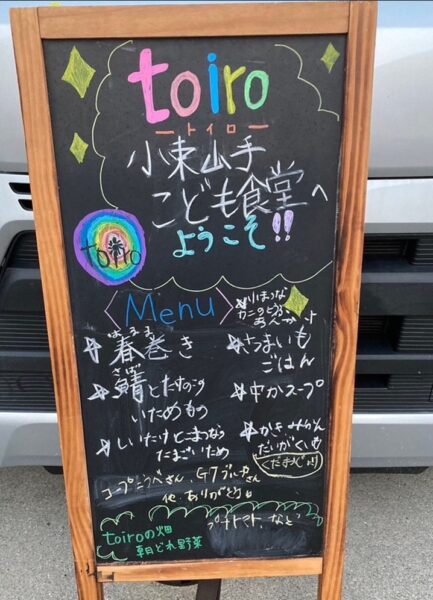 toiro
ートイロー
小束山手
こども食堂へ
ようこそ!!
toiro
〈Menu〉
はるま
春巻き
さば
鯖とたけのこの
いためもの
しいたけとこまつなの
たまごいため
こまつな
カニのとうふ
あんかけ
さつまいも
ごはん
中かスープ
かき みかん
だいがくいも
くだもの
コープこうべさん、G7
さん
他、ありがとう
toiroの畑
朝どれ野菜
プチトマト、など